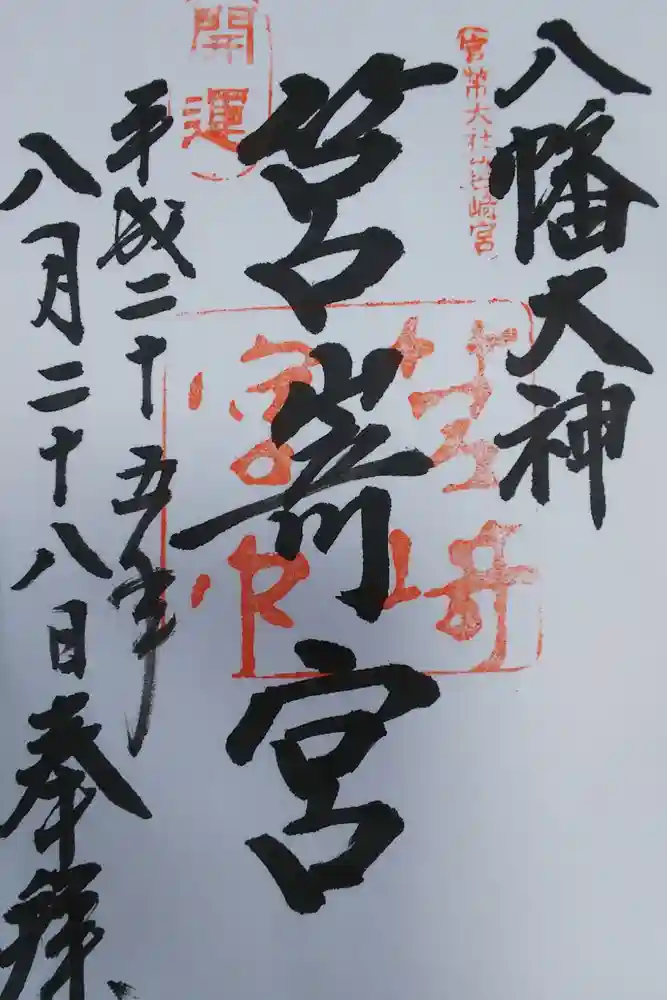 八幡大神
官幣大社筥崎宮
筥嵜宮
筥崎
宮印
開運
平成二十五年
八月二十八日奉拜